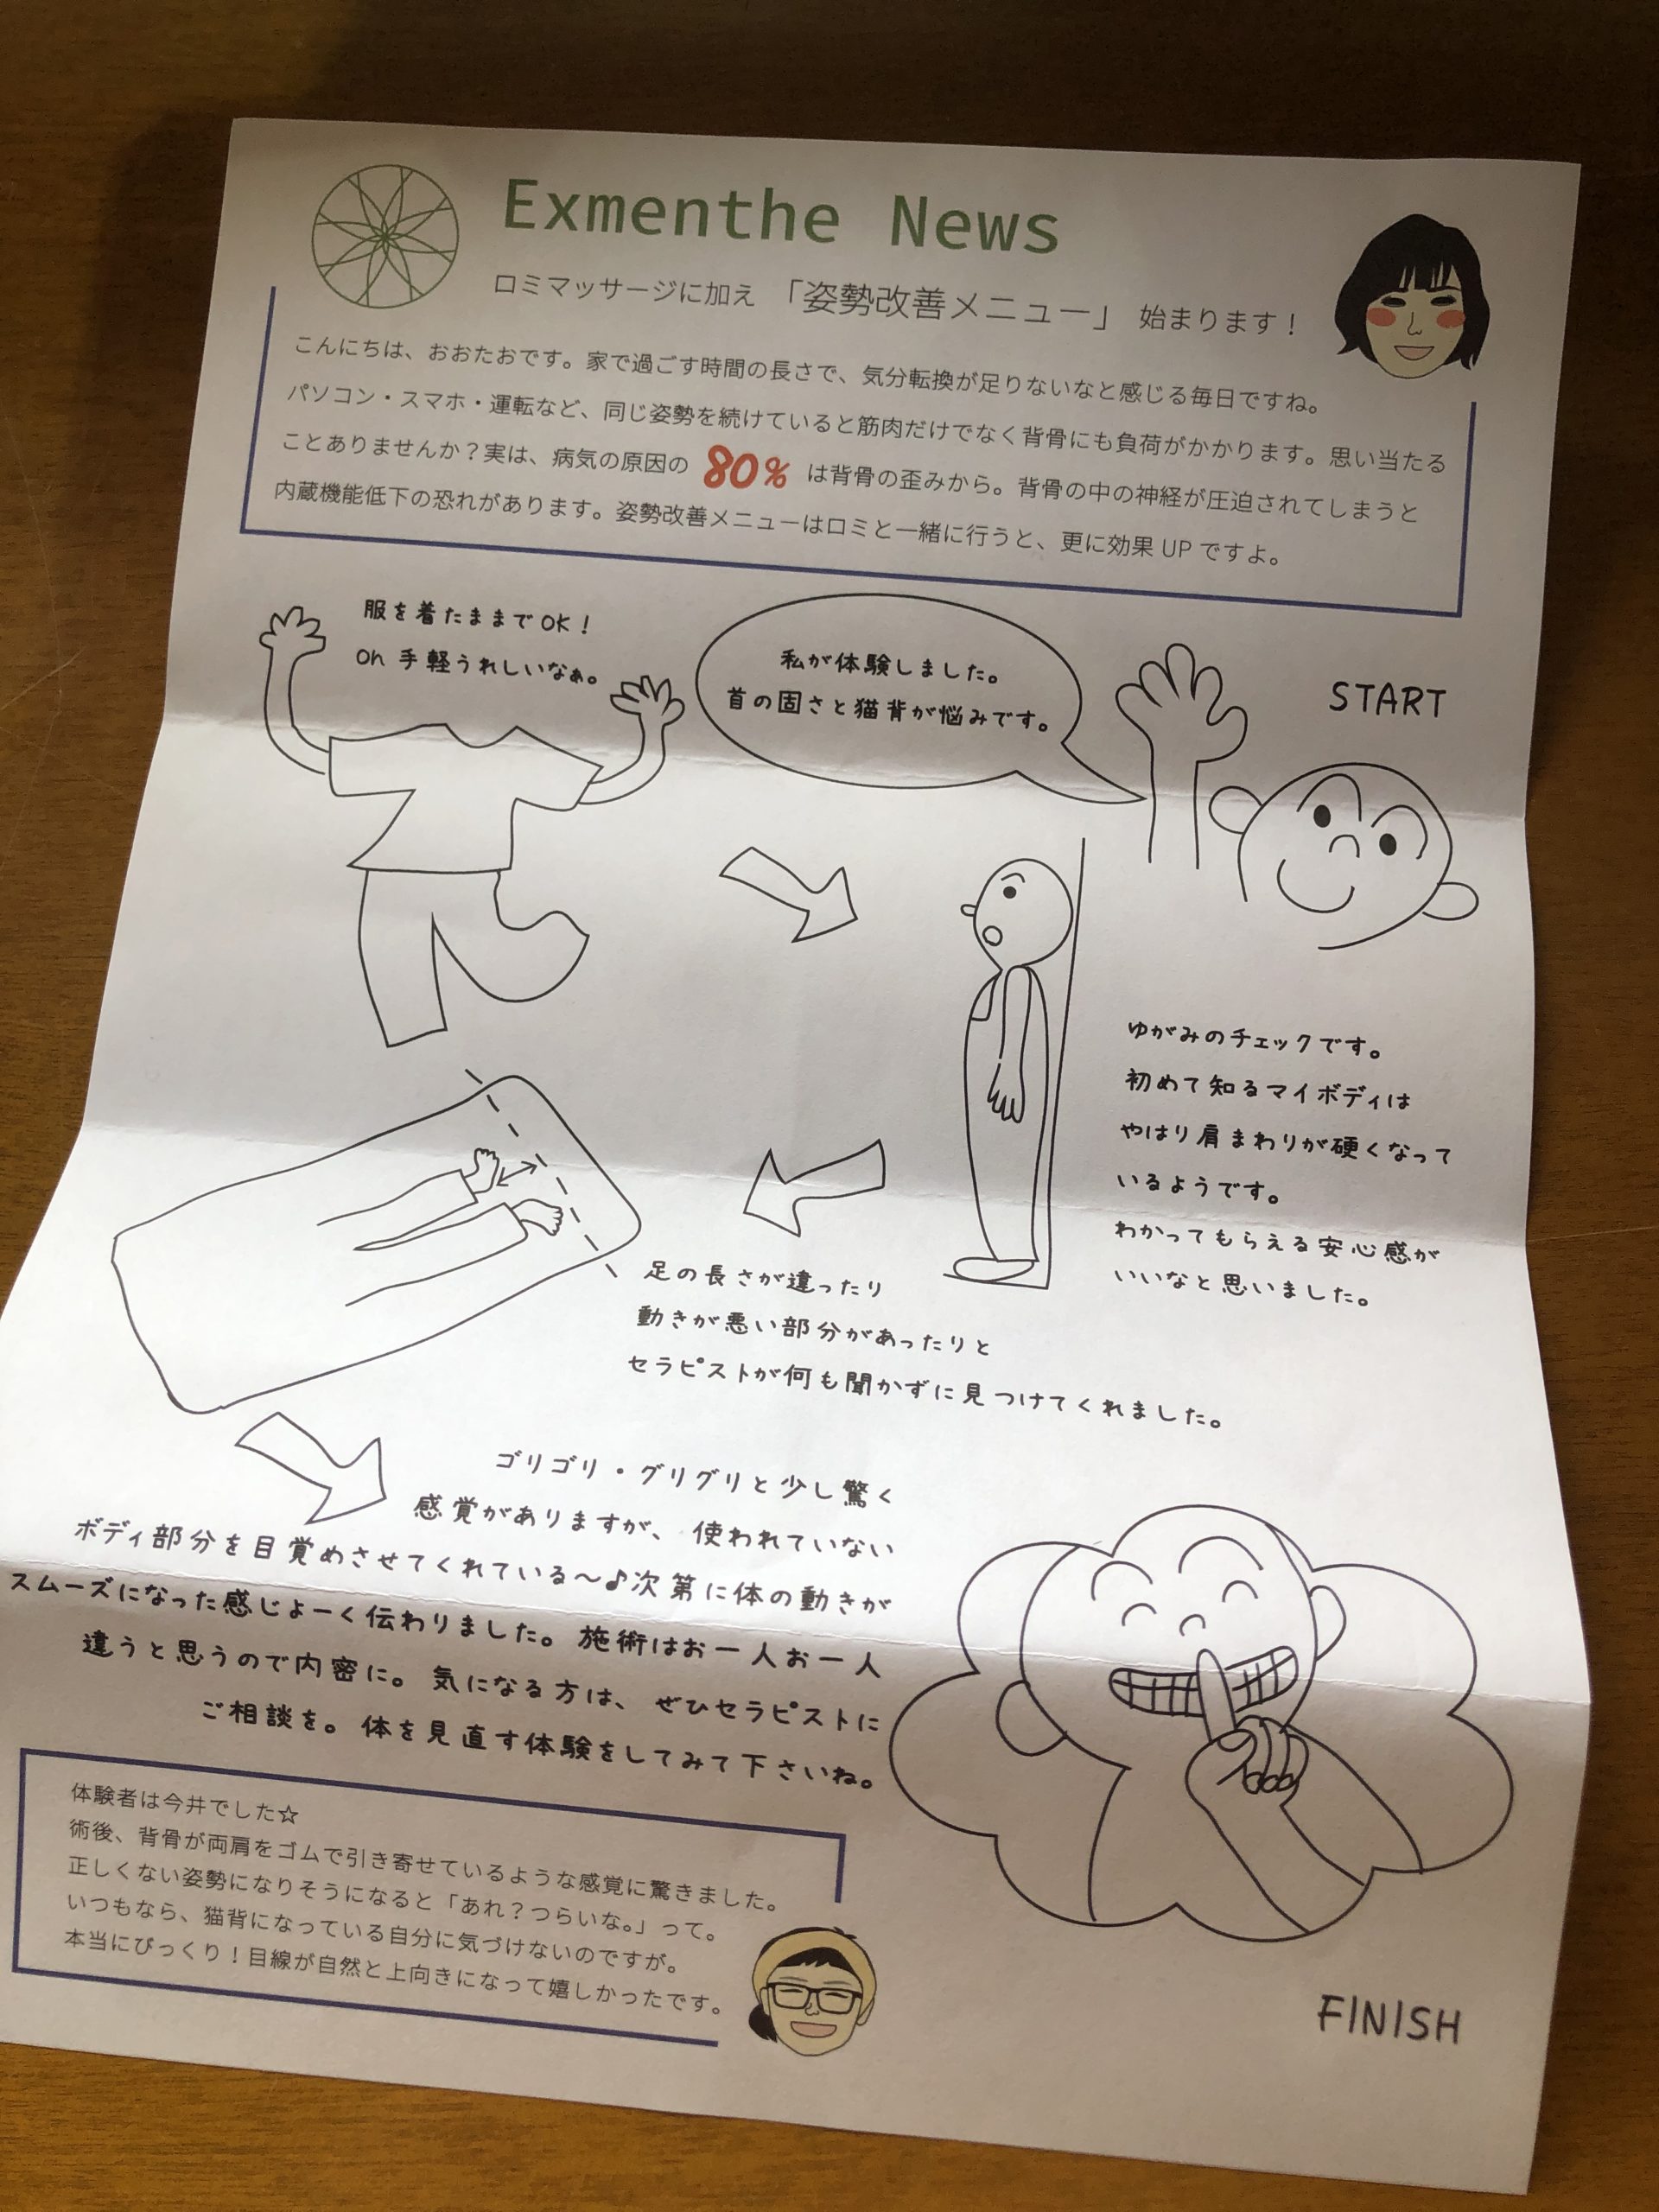 Exmenthe News
ロミマッサージに加え 「姿勢改善メニュー」 始まります！
こんにちは、おおたおです。家で過ごす時間の長さで、気分転換が足りないなと感じる毎日ですね。
パソコン・スマホ・運転など、同じ姿勢を続けていると筋肉だけでなく背骨にも負荷がかかります。思い当たる
ことありませんか？実は、病気の原因の 80% は背骨の歪みから。背骨の中の神経が圧迫されてしまうと
内蔵機能低下の恐れがあります。姿勢改善メニューはロミと一緒に行うと、更に効果 UP ですよ。
START
私が体験しました。
首の固さと猫背が悩みです。
服を着たままでOK！
Oh 手軽うれしいなぁ。
ゆがみのチェックです。
初めて知るマイボディは
やはり肩まわりが硬くなって
いるようです。
わかってもらえる安心感が
いいなと思いました。
足の長さが違ったり
動きが悪い部分があったりと
セラピストが何も聞かずに見つけてくれました。
ゴリゴリ・グリグリと少し驚く
感覚がありますが、使われていない
ボディ部分を目覚めさせてくれている～♪次第に体の動きが
スムーズになった感じよーく伝わりました。施術はお一人お一人
違うと思うので内密に。気になる方は、ぜひセラピストに
ご相談を。体を見直す体験をしてみて下さいね。
体験者は今井でした☆
術後、背骨が両肩をゴムで引き寄せているような感覚に驚きました。
正しくない姿勢になりそうになると「あれ？つらいな。」って。
いつもなら、猫背になっている自分に気づけないのですが。
本当にびっくり！目線が自然と上向きになって嬉しかったです。
FINISH